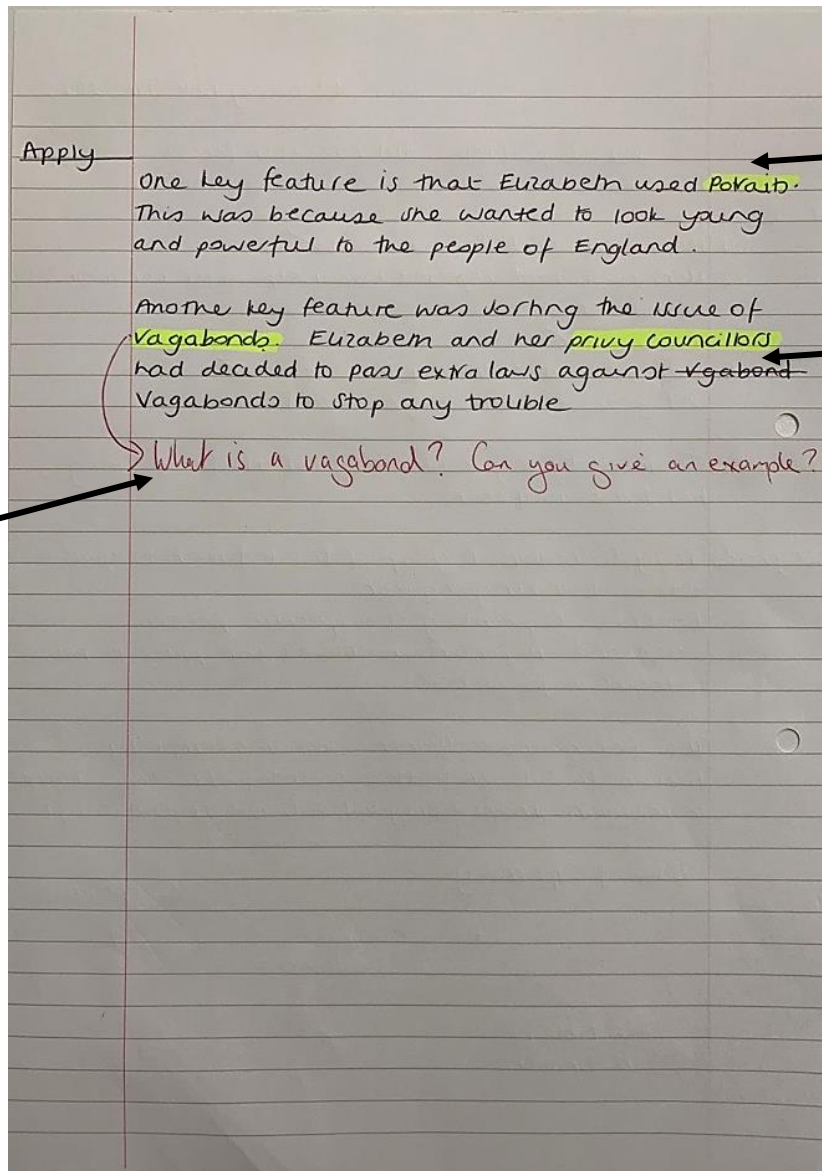 Apply
One key feature is that Elizabeth used Portraits.
This was because she wanted to look young
and powerful to the people of England.
Another key feature was sorting the issue of
Vagabonds. Elizabeth and her privy councillors
had decided to pass extra laws against vgabond
Vagabonds to stop any trouble
What is a vagabond? Can you give an example?